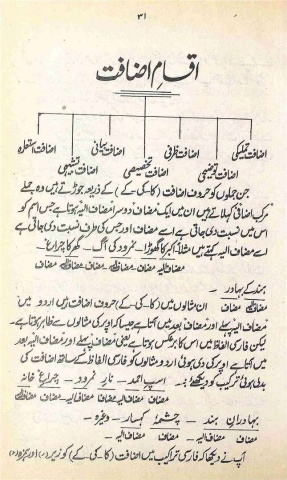 ۳۱
اقسامِ اضافت
اضافت تملیکی اضافت ظرفی اضافت بیانی اضافت استعارہ
اضافت تخصیصی اضافت تشبیہی
جن جملوں کو حروف اضافت (کا۔کی۔کے) کے ذریعہ جوڑتے ہیں وہ جملے
مرکب اضافی کہلاتے ہیں ان میں ایک مضاف دوسرا مضاف الیہ ہوتا ہے جس اسم کو
اس میں نسبت دی جاتی ہے اسے مضاف اور جس کی طرف نسبت دی جاتی ہے
اسے مضاف الیہ کہتے ہیں مثلاً اکبر کا گھوڑا۔ نمرود کی آگ۔ گھر کا چراغ۔
مضاف الیہ مضاف مضاف الیہ مضاف مضاف الیہ مضاف
ہند کے بہادر۔
مضاف الیہ مضاف ان مثالوں میں (کا۔کی۔کے) حروف اضافت ہیں اردو میں
مضاف الیہ پہلے اور مضاف بعد میں آتا ہے جیسا کہ اوپر کی مثالوں سے ظاہر ہوتا ہے۔
لیکن فارسی الفاظ میں اس کا برعکس ہوتا ہے یعنی مضاف پہلے اور مضاف الیہ بعد
میں آتا ہے اوپر کی دی ہوئی اردو مثالوں کو فارسی الفاظ کے ساتھ اضافت کی
بدلی ہوئی ترکیب کو دیکھئے۔ اسپِ احمد۔ نارِ نمرود۔ چراغِ خانہ
مضاف مضاف الیہ مضاف مضاف الیہ مضاف مضاف الیہ
بہادرانِ ہند ۔ چشمۂ کہسار ۔ وغیرہ۔
مضاف مضاف الیہ مضاف مضاف الیہ
آپ نے دیکھا کہ فارسی تراکیب میں اضافت (کا۔کی۔کے) کو زیر (ِ) اور ہمزہ (ء)